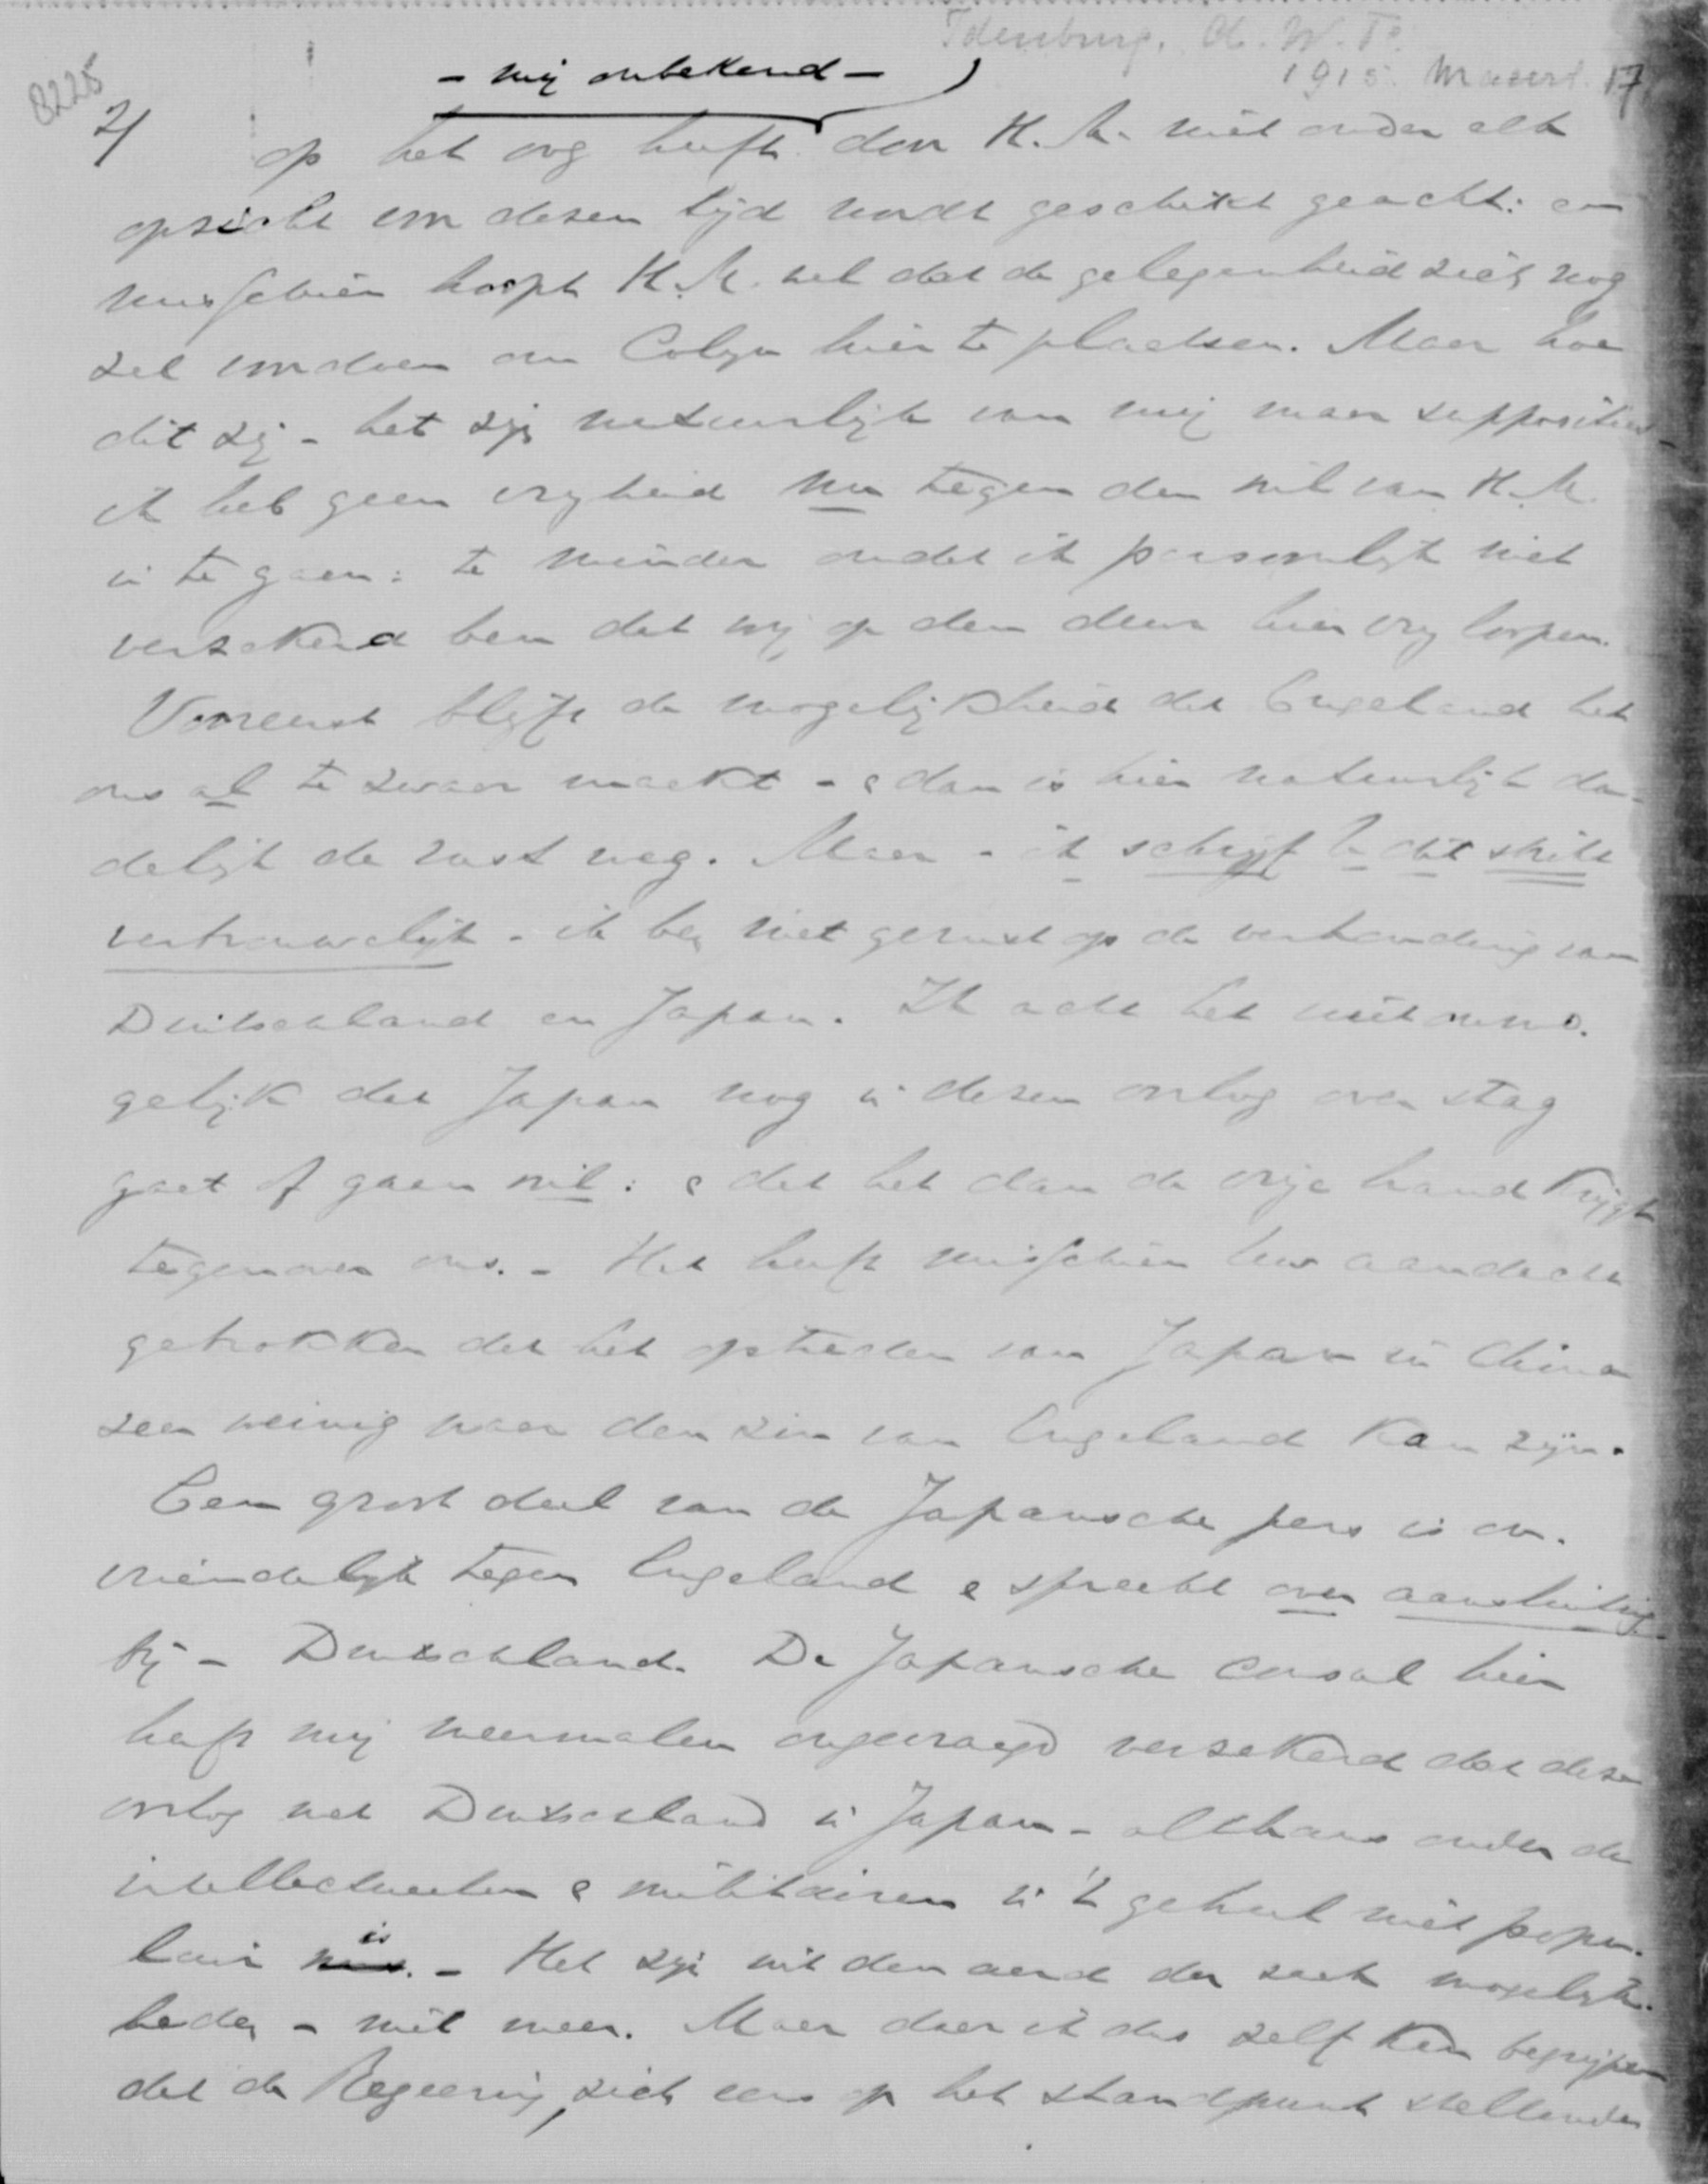 Idenburg, A. W. F.
1915 Maart 17
8225
- mij onbekend - )
2/ op het oog heeft door H.M. niet onder elk
opzicht voor dezen tijd wordt geschikt geacht: en
misschien hoopt H.M. wel dat de gelegenheid zich nog
zal voordoen om Colijn hier te plaatsen. Maar hoe
dit zij - het zijn natuurlijk van mij maar supposities -
ik heb geen vrijheid nu tegen den wil van H.M.
in te gaan: te minder omdat ik persoonlijk niet
verzekerd ben dat wij op den duur hier vrij loopen.
Vooreerst blijft de mogelijkheid dat Engeland het
ons al te zwaar maakt - & dan is hier natuurlijk da-
delijk de rust weg. Maar - ik schrijf U dit strikt
vertrouwelijk - ik ben niet gerust op de verhouding van
Duitschland en Japan. Ik acht het niet onmo-
gelijk dat Japan nog in dezen oorlog over stag
gaat of gaan wil: & dat het dan de vrije hand krijgt
tegenover ons. - Het heeft misschien Uw aandacht
getrokken dat het optreden van Japan in China
zeer weinig naar den zin van Engeland kan zijn.
Een groot deel van de Japansche pers is on-
vriendelijk tegen Engeland & spreekt over aansluiting
bij - Duitschland. De Japansche Consul hier
heeft mij meermalen ongevraagd verzekerd dat deze
oorlog met Duitschland in Japan - althans onder de
intellectueelen & militairen in 't geheel niet popu-
lair is. - Het zijn uit den aard der zaak mogelijk-
heden - niet meer. Maar daar ik dus zelf kan begrijpen
dat de Regeering, zich eens op het standpunt stellende